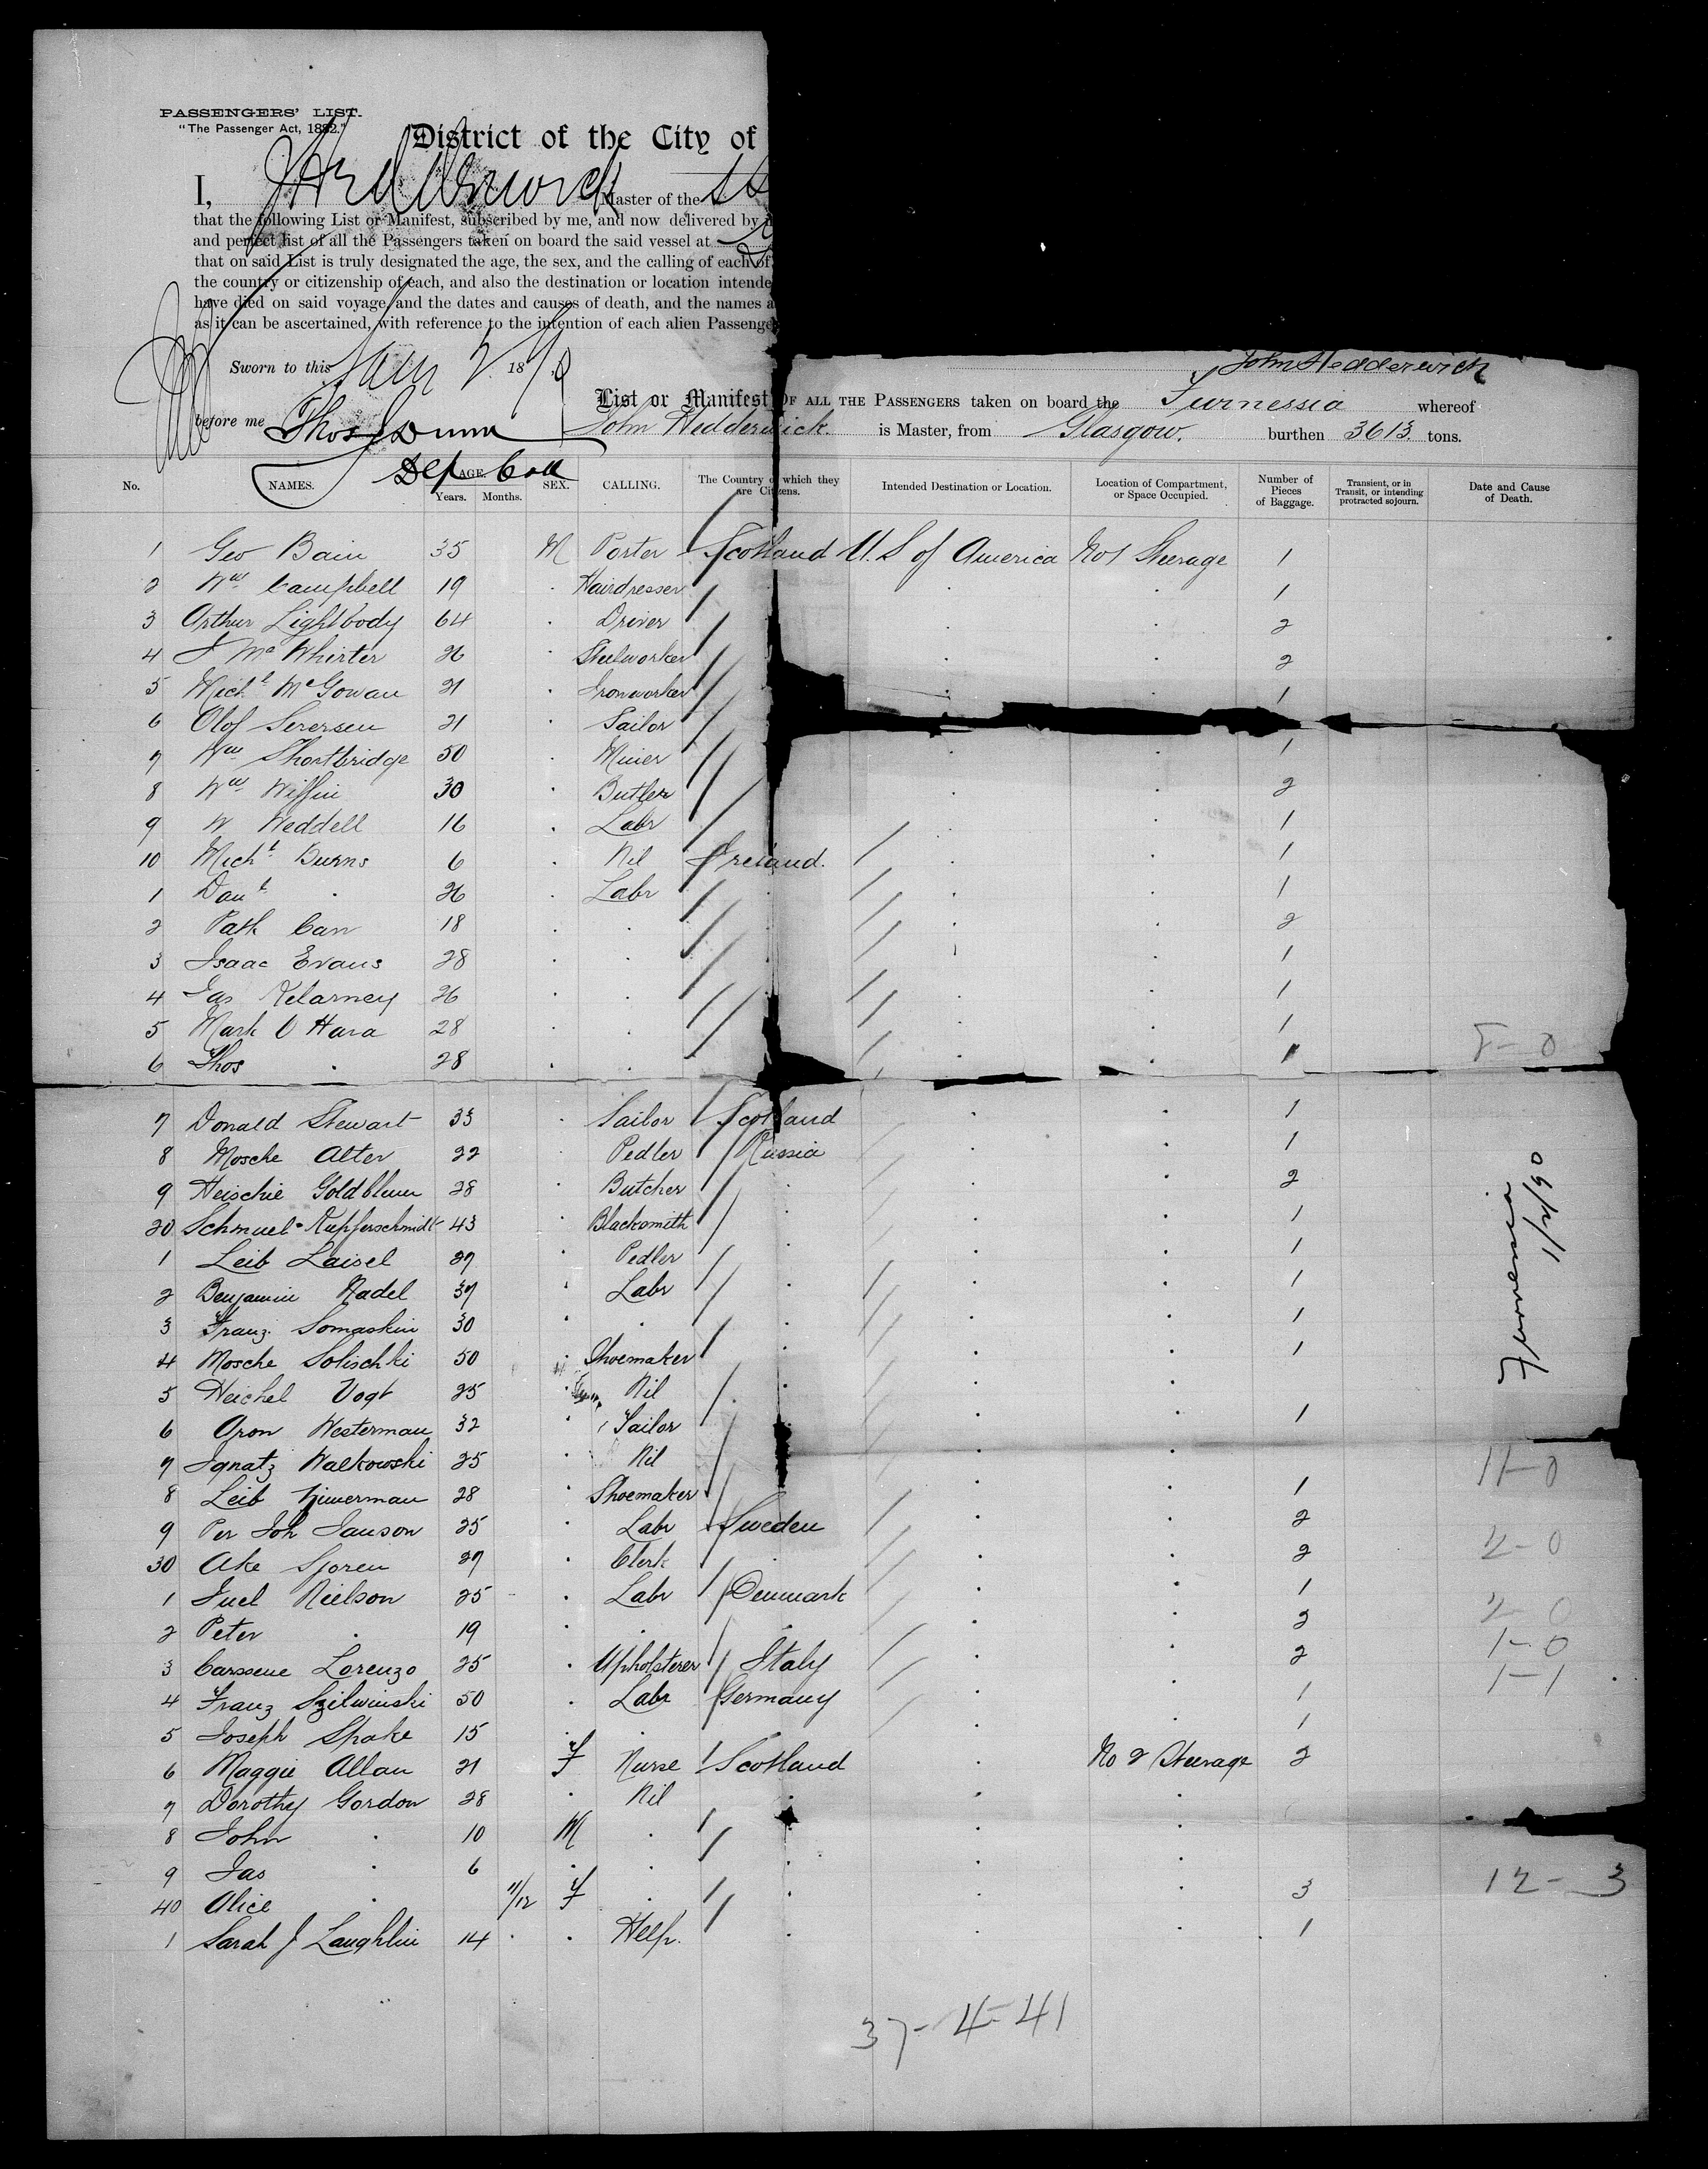 PASSENGERS' LIST.
"The Passenger Act, 1882."
District of the City of
I, Master of the SS
that the following List or Manifest, subscribed by me, and now delivered by
and perfect list of all the Passengers taken on board the said vessel at
that on said List is truly designated the age, the sex, and the calling of each of
the country or citizenship of each, and also the destination or location intende
have died on said voyage, and the dates and causes of death, and the names a
as it can be ascertained, with reference to the intention of each alien Passenge
John Hedderwick
Sworn to this Jan 2 1890
List or Manifest OF ALL THE PASSENGERS taken on board the Furnessia whereof
before me Thos J Dunn
John Hedderwick is Master, from Glasgow. burthen 3613 tons.
Dep Coll
No. NAMES. AGE. Years. Months. SEX. CALLING. The Country of which they are Citizens. Intended Destination or Location. Location of Compartment, or Space Occupied. Number of Pieces of Baggage. Transient, or in Transit, or intending protracted sojourn. Date and Cause of Death.
1 Geo Bain 35 M Porter Scotland U.S of America No 1 Steerage 1
2 Wm Campbell 19 Hairdresser 1
3 Arthur Lightbody 64 Driver 2
4 J McWhirter 26 Steelworker 2
5 Michl McGowan 21 Ironworker 1
6 Olof Serersen 21 Sailor
7 Wm Shortbridge 50 Miner 1
8 Wm Wiffin 30 Butler 2
9 W Weddell 16 Labr 1
10 Michl Burns 6 Nil Ireland. 1
1 Danl 26 Labr 1
2 Patk Carr 18 2
3 Isaac Evans 28 1
4 Jas Kelarney 26 1
5 Mark O Hara 28 1
6 Thos 28 1 8-0
7 Donald Stewart 33 Sailor Scotland 1
8 Mosche Alter 22 Pedler Russia 1
9 Heischie Goldblum 28 Butcher 2
20 Schmuel Kupferschmidt 43 Blacksmith 1
1 Leib Laisel 27 Pedler 1
2 Benjamin Nadel 37 Labr 1
3 Franz Somaskin 30 1
4 Mosche Solischki 50 Shoemaker 1
5 Heichel Vogt 25 Nil
6 Aron Westerman 32 Tailor 1
7 Ignatz Walkowski 25 Nil 11-0
8 Leib Zimerman 28 Shoemaker 1
9 Per Joh Janson 25 Labr Sweden 2
30 Ake Sjoren 27 Clerk 2 2-0
1 Juel Nielson 25 Labr Denmark 1
2 Peter 19 2 2-0
3 Carssene Lorenzo 25 Upholsterer Italy 2 1-0
4 Franz Szilwinski 50 Labr Germany 1 1-1
5 Joseph Spake 15 1
6 Maggie Allan 21 F Nurse Scotland No 2 Steerage 2
7 Dorothy Gordon 28 Nil
8 John 10 M
9 Jas 6
40 Alice 11/12 F 3 12-3
1 Sarah J Laughlin 14 Help. 1
37-4-41
Furnessia
1/2/90